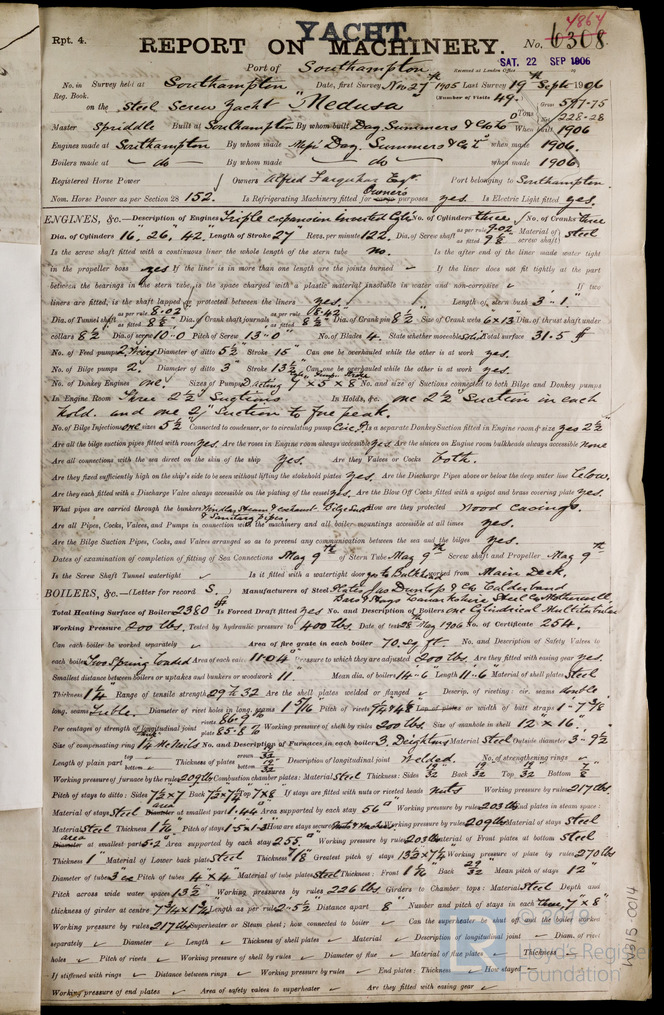 YACHT.
Rpt. 4.
4864
REPORT ON MACHINERY.
No. 6308
Port of Southampton
Received at London Office
SAT. 22 SEP 1906
No. in Survey held at Southampton Date, first Survey Nov 27th 1905 Last Survey 19th Sept 1906
Reg. Book.
(Number of Visits 49.)
on the Steel Screw Yacht "Medusa"
Tons Gross 597.75
Net 228.28
Master Spriddle Built at Southampton By whom built Day, Summers & Co Ld When built 1906
Engines made at Southampton By whom made Mess Day, Summers & Co Ld when made 1906.
Boilers made at do By whom made do when made 1906
Registered Horse Power Owners Alfred Farquhar Esqr Port belonging to Southampton.
Nom. Horse Power as per Section 28 152. Is Refrigerating Machinery fitted for Owners purposes yes. Is Electric Light fitted yes.
ENGINES, &c.—Description of Engines Triple expansion Inverted Cyls. No. of Cylinders three No. of Cranks three
Dia. of Cylinders 16", 26", 42" Length of Stroke 27" Revs. per minute 122. Dia. of Screw shaft as per rule 9.02 as fitted 9 1/8 Material of screw shaft steel
Is the screw shaft fitted with a continuous liner the whole length of the stern tube no. Is the after end of the liner made water tight
in the propeller boss yes If the liner is in more than one length are the joints burned If the liner does not fit tightly at the part
between the bearings in the stern tube, is the space charged with a plastic material insoluble in water and non-corrosive If two
liners are fitted, is the shaft lapped or protected between the liners yes. Length of stern bush 3'-1".
Dia. of Tunnel shaft as per rule 8.02 as fitted 8 1/2 Dia. of Crank shaft journals as per rule 8.42 as fitted 8 1/2 Dia. of Crank pin 8 1/2" Size of Crank webs 6"x13" Dia. of thrust shaft under
collars 8 1/2 Dia. of screw 10'-0 Pitch of Screw 13'-0" No. of Blades 4. State whether moveable solid Total surface 31.5 ft
No. of Feed pumps 2 Weirs Diameter of ditto 5 1/2 Stroke 15" Can one be overhauled while the other is at work yes.
No. of Bilge pumps 2. Diameter of ditto 3 Stroke 13 1/2 Can one be overhauled while the other is at work yes.
No. of Donkey Engines one. Sizes of Pumps D acting 7"x5"x8" No. and size of Suctions connected to both Bilge and Donkey pumps
In Engine Room Three 2 1/2" Suctions In Holds, &c. one 2 1/2" Suction in each
hold. and one 2" Suction to fore peak.
No. of Bilge Injections one sizes 5 1/2 Connected to condenser, or to circulating pump Circ. P. Is a separate Donkey Suction fitted in Engine room & size yes 2 1/2"
Are all the bilge suction pipes fitted with roses yes. Are the roses in Engine room always accessible yes. Are the sluices on Engine room bulkheads always accessible none
Are all connections with the sea direct on the skin of the ship yes. Are they Valves or Cocks both.
Are they fixed sufficiently high on the ship's side to be seen without lifting the stokehold plates yes. Are the Discharge Pipes above or below the deep water line below.
Are they each fitted with a Discharge Valve always accessible on the plating of the vessel yes. Are the Blow Off Cocks fitted with a spigot and brass covering plate yes.
What pipes are carried through the bunkers Windlass Steam & exhaust. Bilge Suct. & Sanitary Pipes. How are they protected wood casings.
Are all Pipes, Cocks, Valves, and Pumps in connection with the machinery and all boiler mountings accessible at all times yes.
Are the Bilge Suction Pipes, Cocks, and Valves arranged so as to prevent any communication between the sea and the bilges yes.
Dates of examination of completion of fitting of Sea Connections May 9th of Stern Tube May 9th Screw shaft and Propeller May 9th
Is the Screw Shaft Tunnel watertight Is it fitted with a watertight door yes to Bulkhd worked from Main Deck.
BOILERS, &c.—(Letter for record S. Manufacturers of Steel Plates Jas Dunlop & Co Calderbank
Bars & Stays Lanarkshire Steel Co Motherwell
Total Heating Surface of Boilers 2380 Is Forced Draft fitted yes No. and Description of Boilers one Cylindrical Multitubular
Working Pressure 200 lbs. Tested by hydraulic pressure to 400 lbs Date of test 28th May 1906 No. of Certificate 254.
Can each boiler be worked separately Area of fire grate in each boiler 70. sq ft. No. and Description of Safety Valves to
each boiler Two Spring loaded Area of each valve 11.04" Pressure to which they are adjusted 200 lbs Are they fitted with easing gear yes.
Smallest distance between boilers or uptakes and bunkers or woodwork 11" Mean dia. of boilers 14-6 Length 11-6 Material of shell plates Steel
Thickness 1 1/4" Range of tensile strength 29 to 32 Are the shell plates welded or flanged Descrip. of riveting: cir. seams double
long. seams Treble. Diameter of rivet holes in long. seams 1 5/16 Pitch of rivets Lap of plates or width of butt straps 1-7 7/8
Per centages of strength of longitudinal joint rivets 86.9% plate 85.8% Working pressure of shell by rules 200 lbs Size of manhole in shell 12"x16".
Size of compensating ring McNeils No. and Description of Furnaces in each boiler 3. Deightons Material Steel Outside diameter 3-9 1/2
Length of plain part top bottom Thickness of plates crown 19/32 bottom 19/32 Description of longitudinal joint welded. No. of strengthening rings
Working pressure of furnace by the rules 209 lbs Combustion chamber plates: Material Steel Thickness: Sides 19/32 Back 19/32 Top 19/32 Bottom 7/8
Pitch of stays to ditto: Sides 7 1/2x7 Back 7 1/2x7 1/4 Top 7x8 If stays are fitted with nuts or riveted heads nuts Working pressure by rules 217 lbs.
Material of stays Steel area Diameter at smallest part 1.44 Area supported by each stay 56" Working pressure by rules 203 lbs End plates in steam space:
Material Steel Thickness 1 1/16 Pitch of stays 1.5x1.3 How are stays secured Nuts & Washers Working pressure by rules 209 lbs Material of stays Steel
area Diameter at smallest part 5.2 Area supported by each stay 255 Working pressure by rules 203 lbs Material of Front plates at bottom Steel
Thickness 1" Material of Lower back plate Steel Thickness 7/8 Greatest pitch of stays 13 1/2x7 1/4 Working pressure of plate by rules 270 lbs
Diameter of tubes 3 ea Pitch of tubes 4"x4" Material of tube plates Steel Thickness: Front 1 1/16 Back 29/32 Mean pitch of stays 12"
Pitch across wide water spaces 13 1/2" Working pressures by rules 226 lbs Girders to Chamber tops: Material Steel Depth and
thickness of girder at centre 7 3/4x1 3/4 Length as per rule 2-5 1/2 Distance apart 8" Number and pitch of stays in each three, 7"x8"
Working pressure by rules 217 lbs Superheater or Steam chest; how connected to boiler Can the superheater be shut off and the boiler worked
separately Diameter Length Thickness of shell plates Material Description of longitudinal joint Diam. of rivet
holes Pitch of rivets Working pressure of shell by rules Diameter of flue Material of flue plates Thickness
If stiffened with rings Distance between rings Working pressure by rules End plates: Thickness How stayed
Working pressure of end plates Area of safety valves to superheater Are they fitted with easing gear
© 2019
Lloyd's Register
Foundation
W315-0014